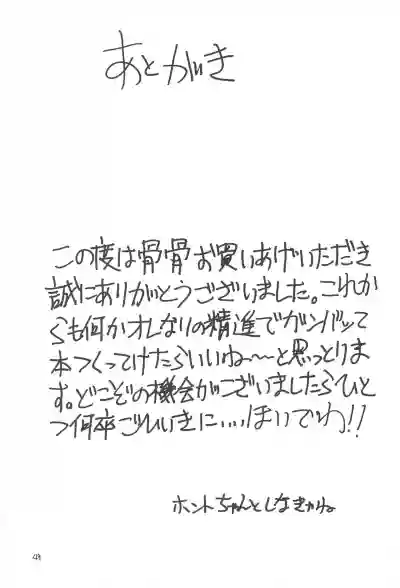 あとがき
この度は骨骨お買いあげいただき
誠にありがとうございました。これか
らも何かオレなりの精進でガンバッて
本つくってけたらいいね〜〜と思っとりま
す。どこぞの機会がございましたらひと
つ何卒ごひいきに…,ほいでわ!!
ホントちゃんとしなきゃね